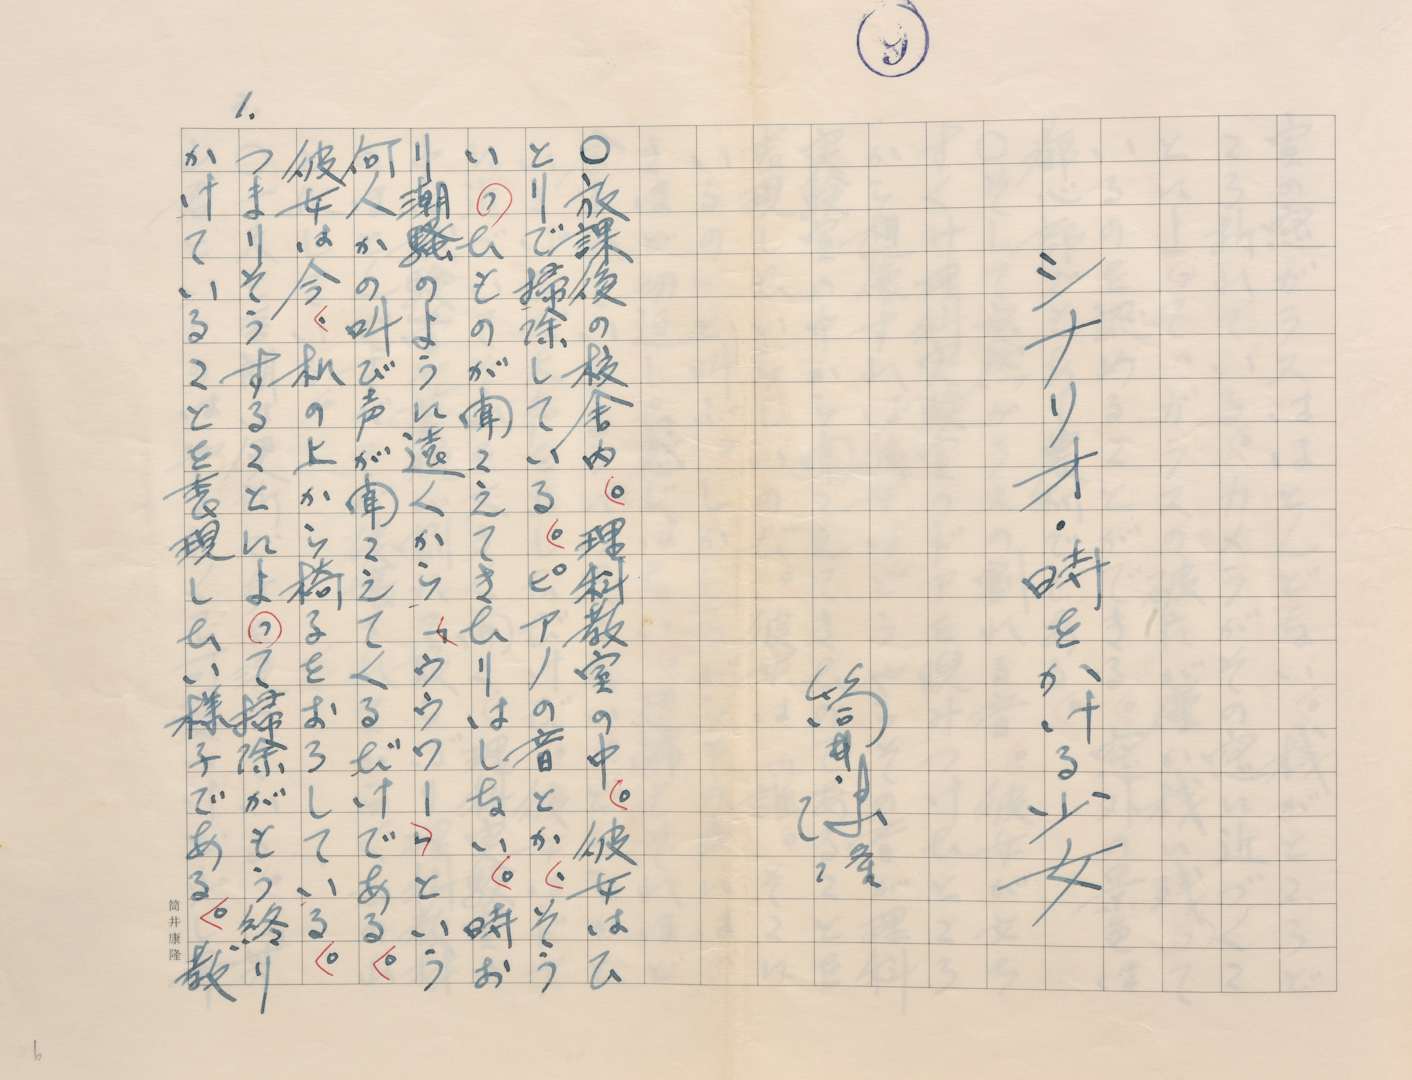 9
シナリオ・時をかける少女
筒井康隆
○放課後の校舎内。理科教室の中。彼女はひ
とりで掃除している。ピアノの音とか、そう
いったものが聞こえてきたりはしない。時お
り潮騒のように遠くから「ウウウワー」という
何人かの叫び声が聞こえてくるだけである。
彼女は今、机の上から椅子をおろしている。
つまりそうすることによって掃除がもう終り
かけていることを表現したい様子である。散
1.
筒井康隆